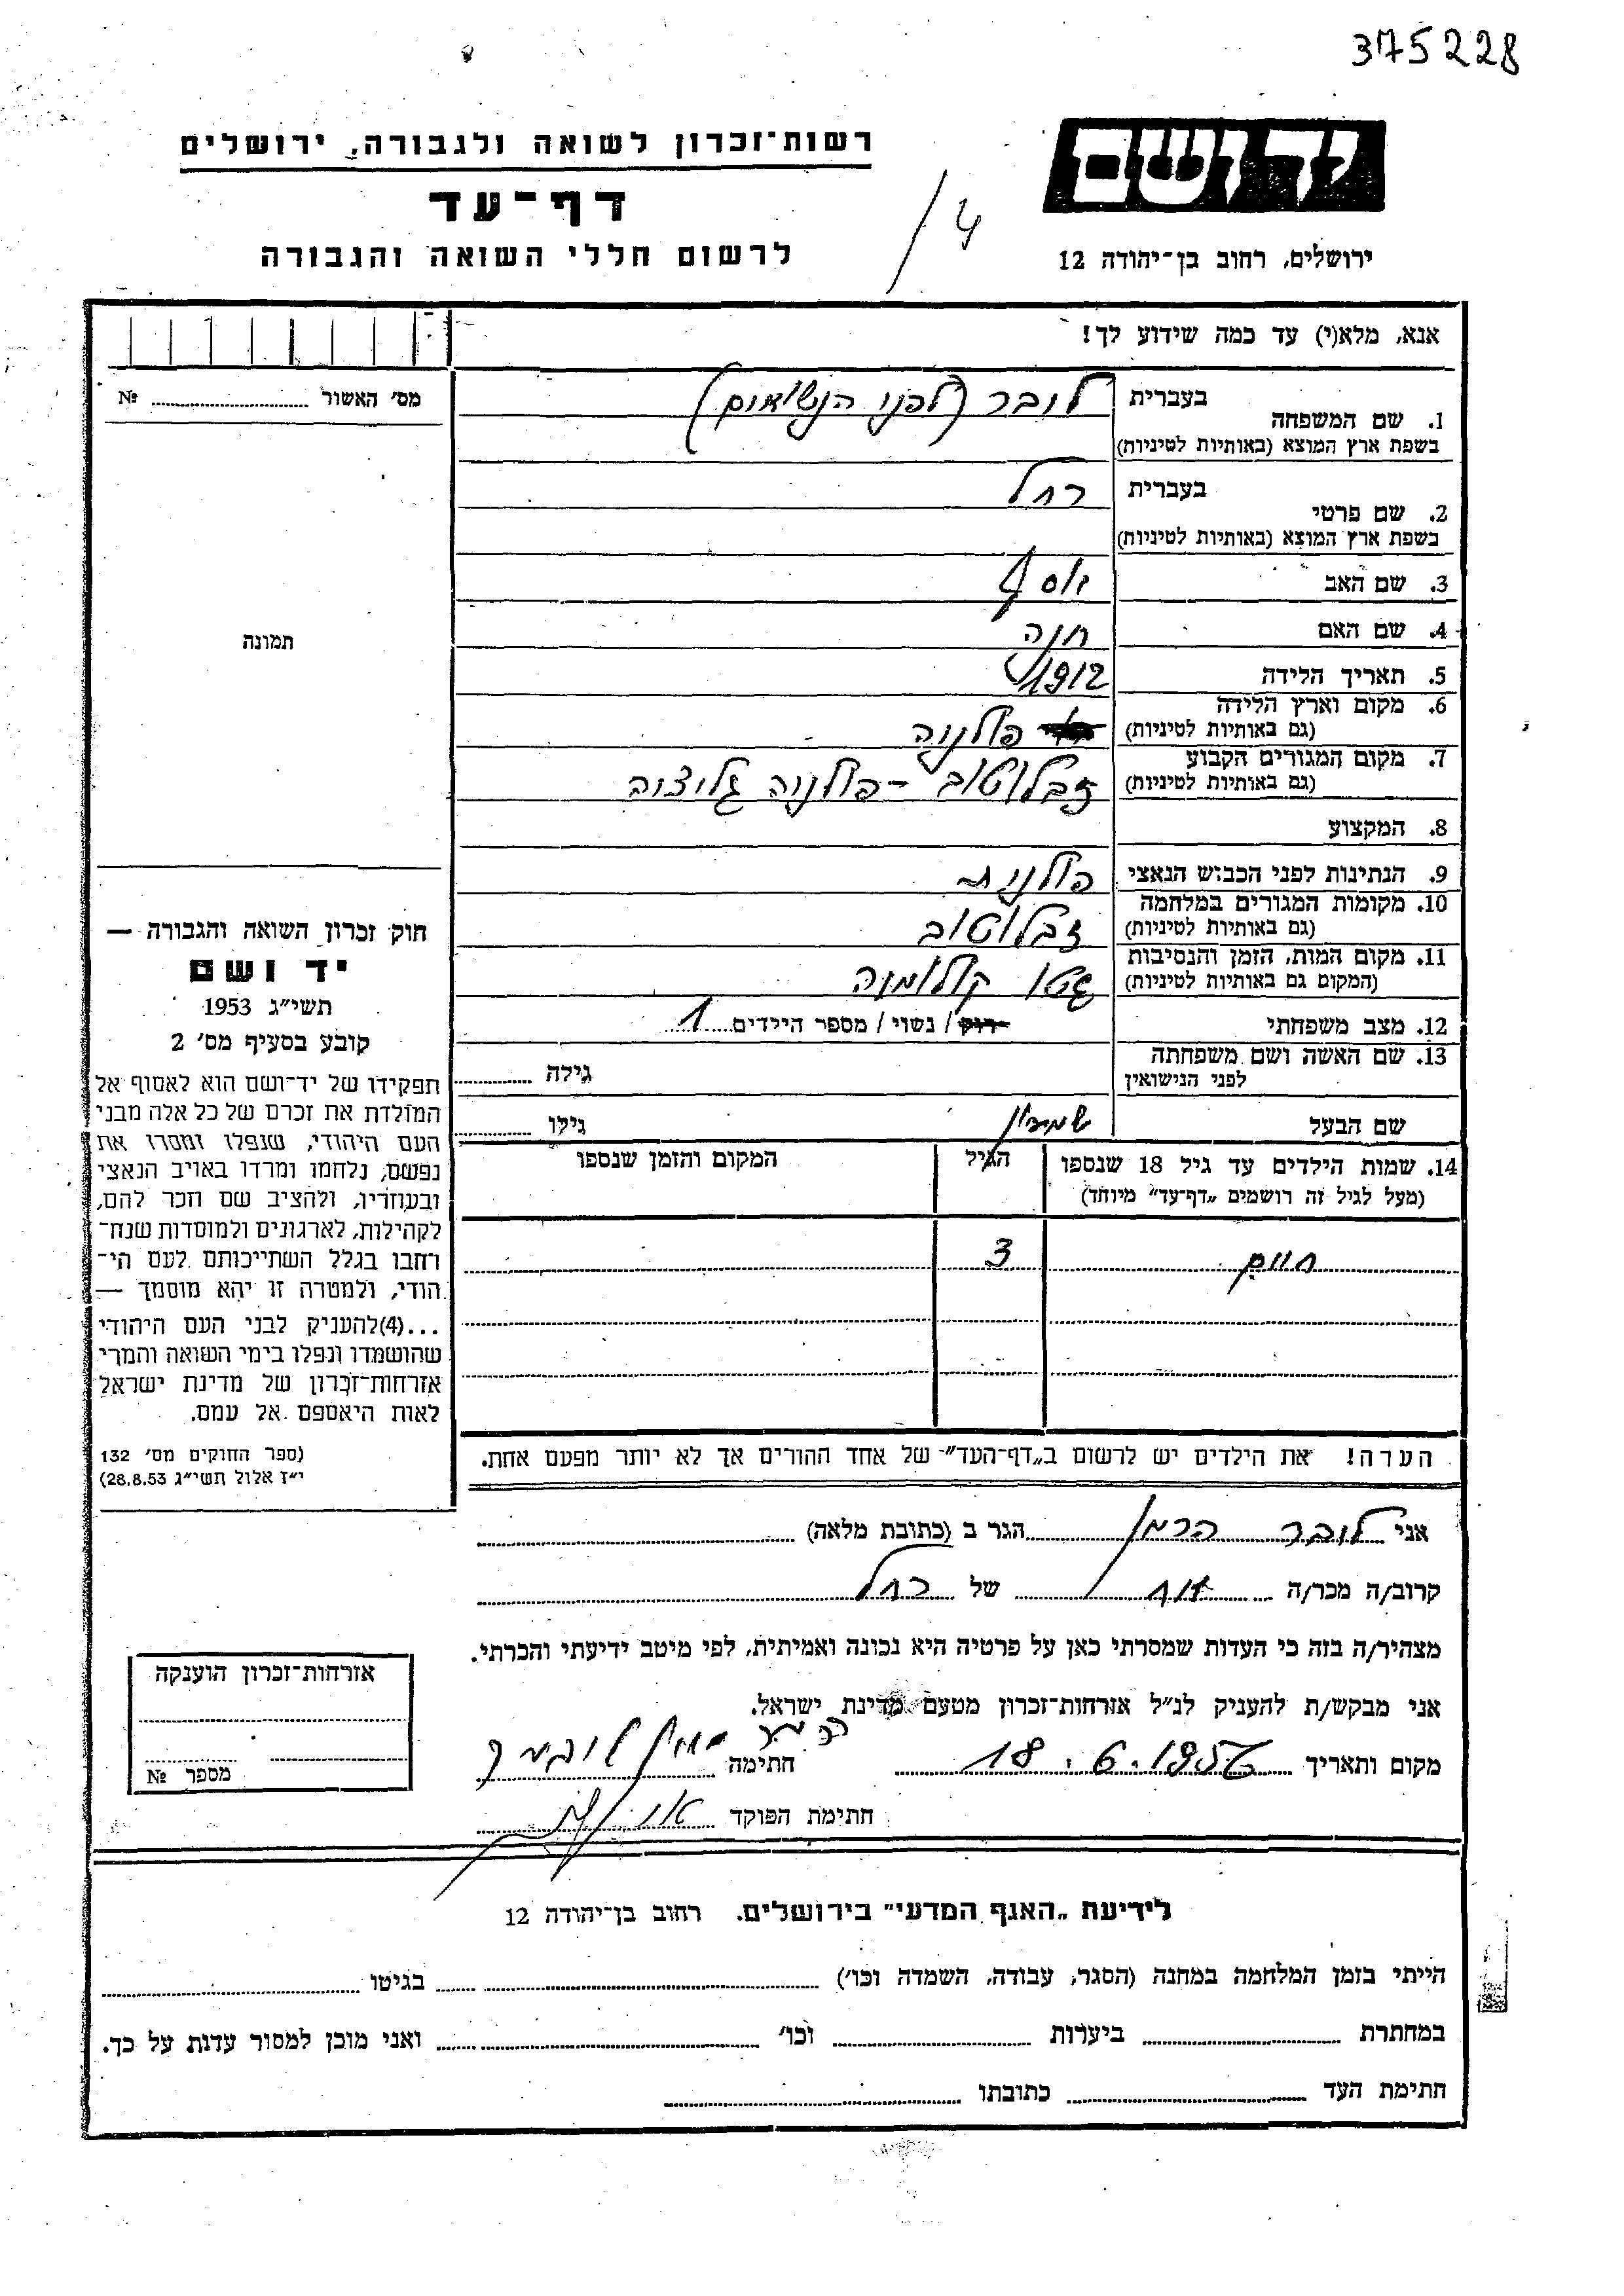 375228
יד ושם
רשות־זכרון לשואה ולגבורה, ירושלים
דף־עד
4/
ירושלים, רחוב בן־יהודה 12
לרשום חללי השואה והגבורה
אנא, מלא(י) עד כמה שידוע לך!
מס׳ האשור № ..........
תמונה
1. שם המשפחה
בעברית לובר (לפני הנשואים)
בשפת ארץ המוצא (באותיות לטיניות)
2. שם פרטי
בעברית רחל
בשפת ארץ המוצא (באותיות לטיניות)
3. שם האב יוסף
4. שם האם חנה
5. תאריך הלידה 1912
6. מקום וארץ הלידה
(גם באותיות לטיניות) פולניה
7. מקום המגורים הקבוע
(גם באותיות לטיניות) זבלוטוב - פולניה גליציה
8. המקצוע
9. הנתינות לפני הכבוש הנאצי פולנית
10. מקומות המגורים במלחמה
(גם באותיות לטיניות) זבלוטוב
11. מקום המות, הזמן והנסיבות
(המקום גם באותיות לטיניות) גטו קולומיה
12. מצב משפחתי רוק / נשוי / מספר הילדים 1
13. שם האשה ושם משפחתה
לפני הנישואין גילה ..........
שם הבעל שמעון גילו ..........
14. שמות הילדים עד גיל 18 שנספו הגיל המקום והזמן שנספו
(מעל לגיל זה רושמים „דף־עד״ מיוחד)
חיים 3
הערה! את הילדים יש לרשום ב„דף־העד״ של אחד ההורים אך לא יותר מפעם אחת.
חוק זכרון השואה והגבורה —
יד ושם
תשי״ג 1953
קובע בסעיף מס׳ 2
תפקידו של יד־ושם הוא לאסוף אל
המולדת את זכרם של כל אלה מבני
העם היהודי, שנפלו ומסרו את
נפשם, נלחמו ומרדו באויב הנאצי
ובעוזריו, ולהציב שם וזכר להם,
לקהילות, לארגונים ולמוסדות שנח־
רחבו בגלל השתייכותם לעם הי־
הודי, ולמטרה זו יהא מוסמך —
...(4)להעניק לבני העם היהודי
שהושמדו ונפלו בימי השואה והמרי
אזרחות־זכרון של מדינת ישראל
לאות היאספם אל עמם.
(ספר החוקים מס׳ 132
י״ז אלול תשי״ג 28.8.53)
אני לובר הרמן הגר ב (כתובת מלאה) ..........
קרוב/ה מכר/ה אח של רחל
מצהיר/ה בזה כי העדות שמסרתי כאן על פרטיה היא נכונה ואמיתית, לפי מיטב ידיעתי והכרתי.
אני מבקש/ת להעניק לנ״ל אזרחות־זכרון מטעם מדינת ישראל.
מקום ותאריך 18.6.1956 חתימה
חתימת הפוקד
אזרחות־זכרון הוענקה
מספר №
לידיעת „האגף המדעי״ בירושלים. רחוב בן־יהודה 12
הייתי בזמן המלחמה במחנה (הסגר, עבודה, השמדה וכו׳) .......... בגיטו ..........
במחתרת .......... ביערות .......... וכו׳ .......... ואני מוכן למסור עדות על כך.
חתימת העד .......... כתובתו ..........